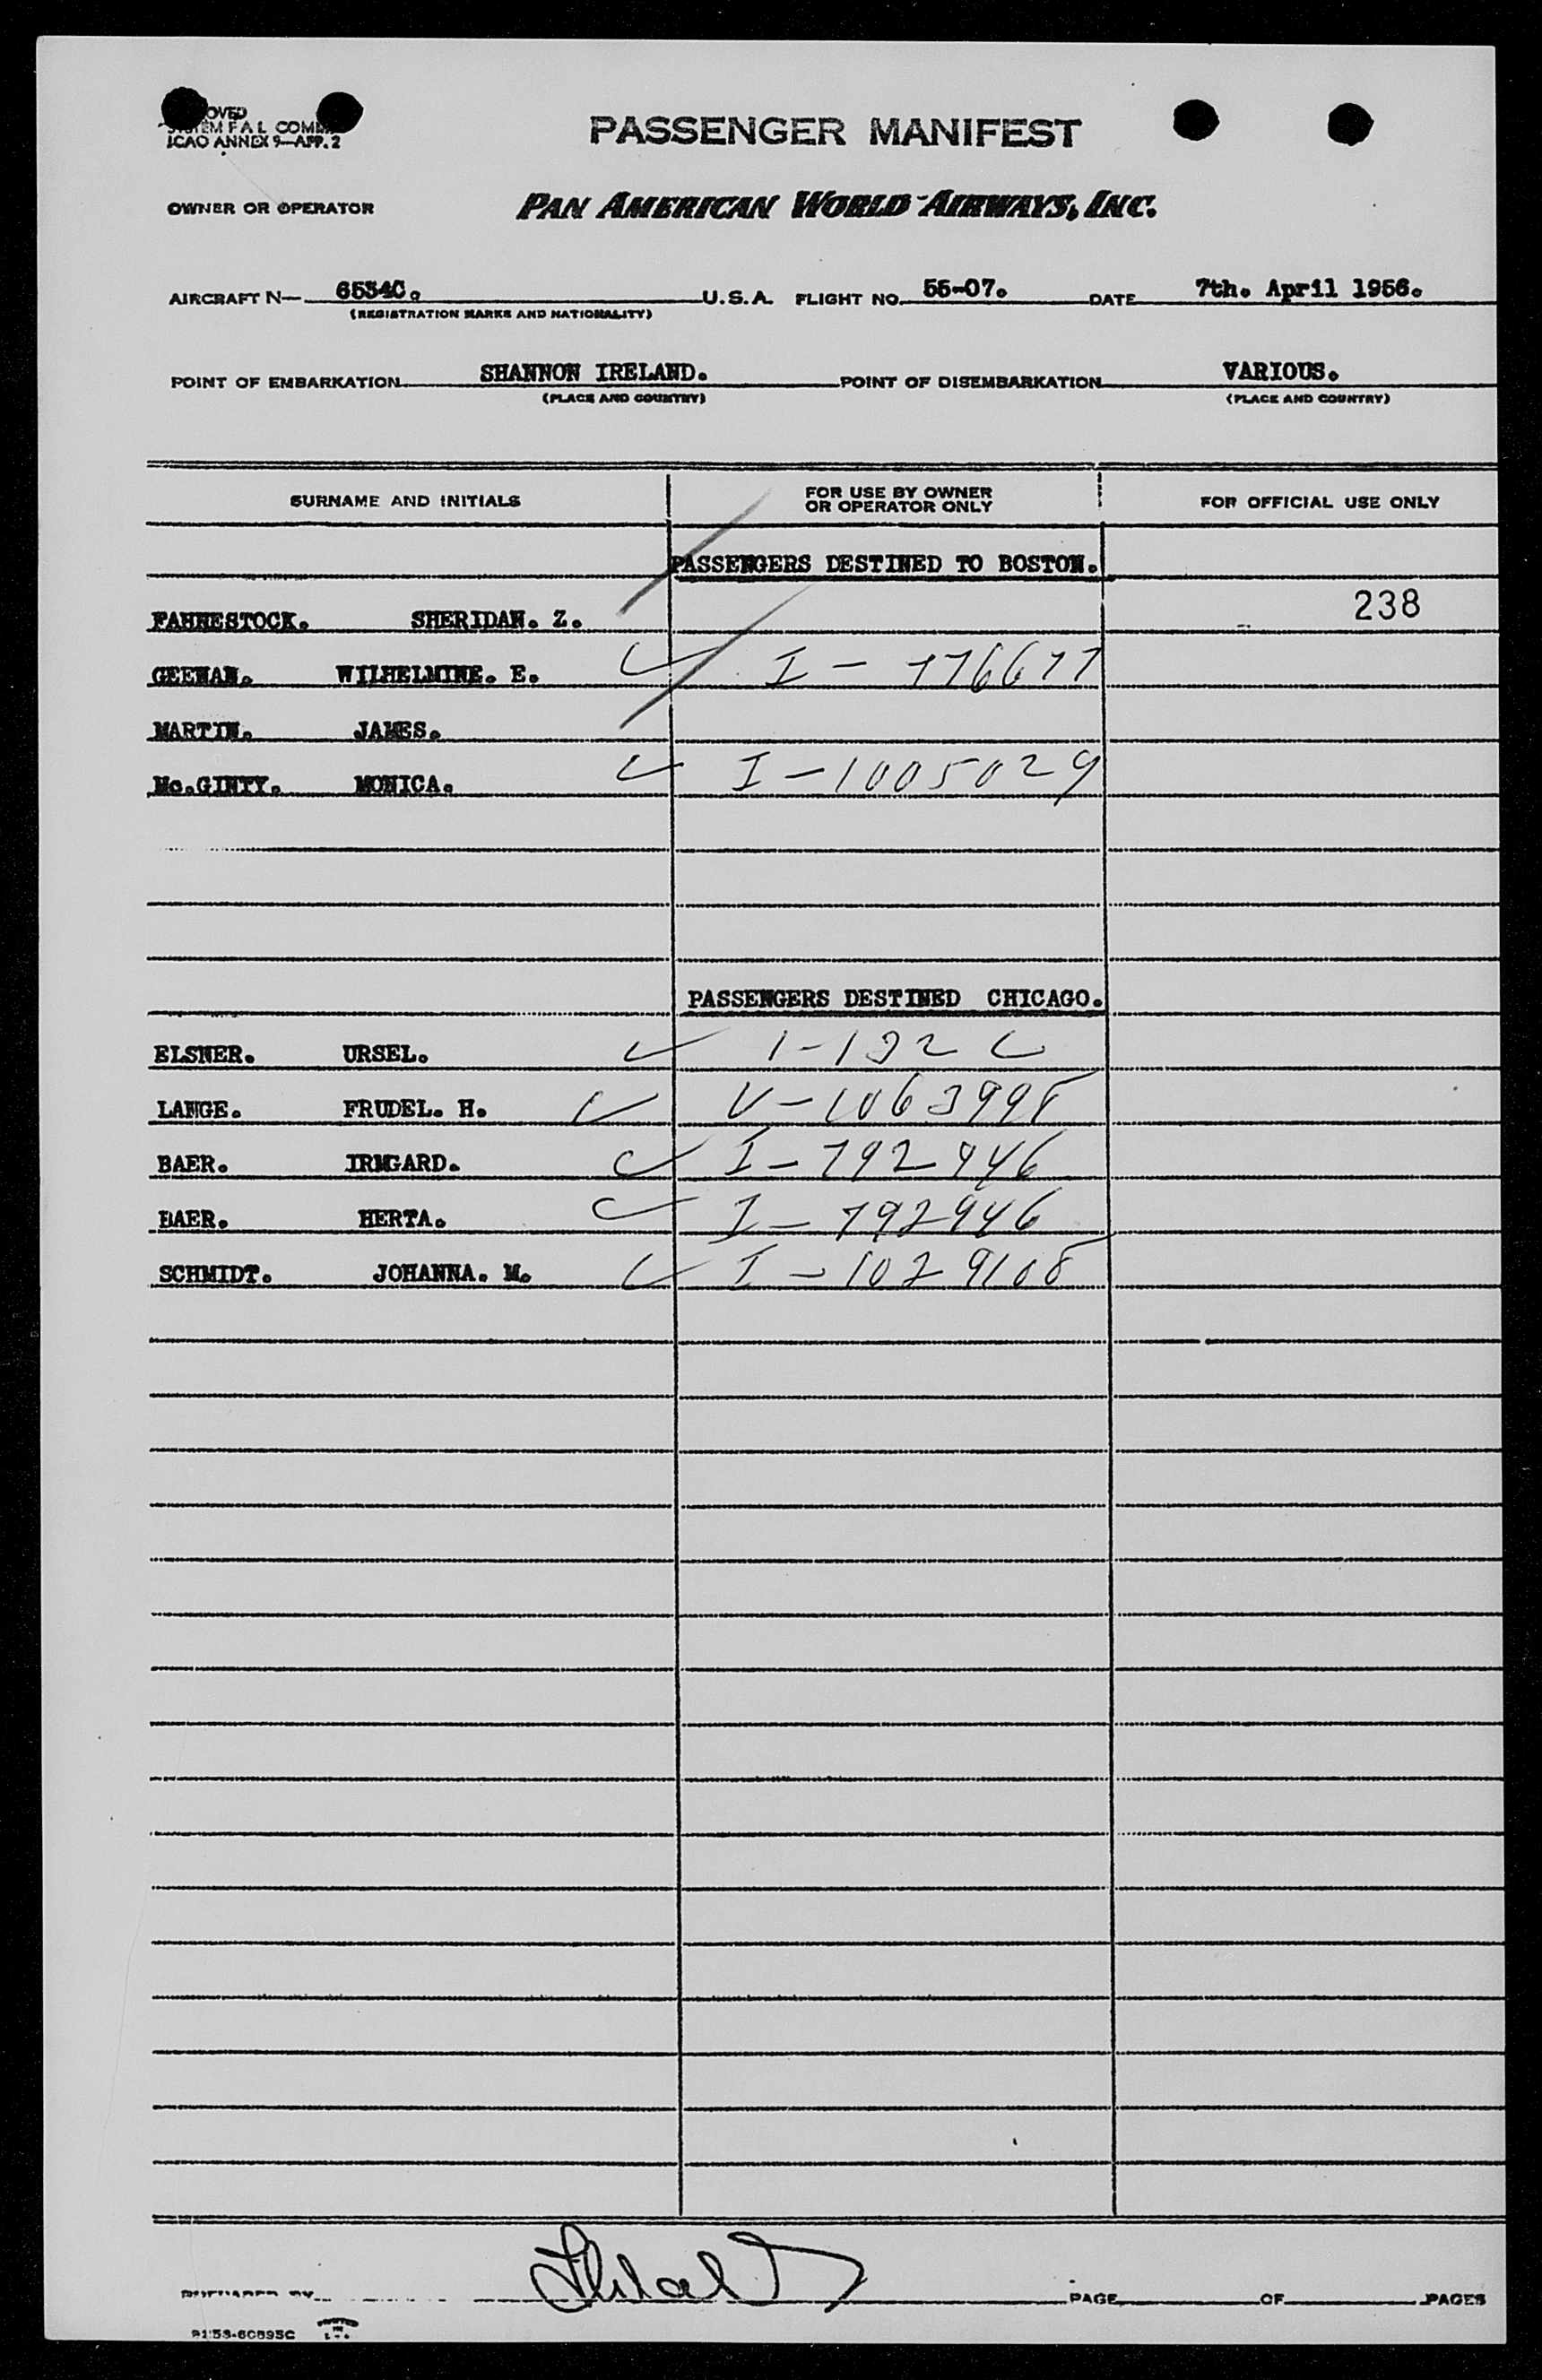 OVED
SYSTEM F A L COM
ICAO ANNEX 9—APP. 2
PASSENGER MANIFEST
OWNER OR OPERATOR PAN AMERICAN WORLD AIRWAYS, INC.
AIRCRAFT N— 6534C. U.S.A. FLIGHT NO. 55-07. DATE 7th. April 1956.
(REGISTRATION MARKS AND NATIONALITY)
POINT OF EMBARKATION SHANNON IRELAND. POINT OF DISEMBARKATION VARIOUS.
(PLACE AND COUNTRY) (PLACE AND COUNTRY)
SURNAME AND INITIALS FOR USE BY OWNER OR OPERATOR ONLY FOR OFFICIAL USE ONLY
PASSENGERS DESTINED TO BOSTON.
FAHNESTOCK. SHERIDAN. Z. 238
GEENAN. WILHELMINE. E. I - 776677
MARTIN. JAMES.
Mc.GINTY. MONICA. I - 1005029
PASSENGERS DESTINED CHICAGO.
ELSNER. URSEL. I-132 C
LANGE. FRUDEL. H. V-1063998
BAER. IRMGARD. I-792946
BAER. HERTA. I-792946
SCHMIDT. JOHANNA. M. I-1029108
PREPARED BY PAGE OF PAGES